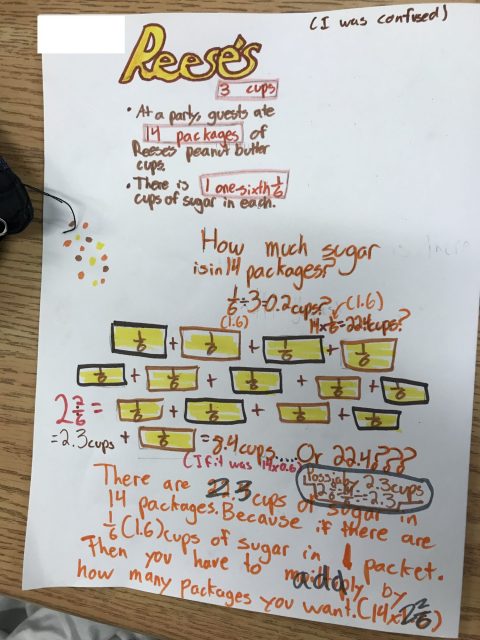 (I was confused)
Reese's
3 cups
• At a party, guests ate
14 packages of
Reese's peanut butter
cups.
• There is 1 one-sixth 1/6
cups of sugar in each.
How much sugar
is in 14 packages?
1/6 ÷ 3 = 0.2 cups? (1.6)
(1.6) 14 x 1/6 = 22.4 cups?
1/6 + 1/6 + 1/6 + 1/6
1/6 + 1/6 + 1/6 + 1/6 + 1/6
2 2/6 = 1/6 + 1/6 + 1/6 + 1/6
= 2.3 cups + 1/6 = 8.4 cups.... Or 22.4???
(If it was 14x0.6)
Possibly 2.3 cups
There are 2.3 cups of sugar in
14 packages. Because if there are
1/6 (1.6) cups of sugar in 1 packet.
Then you have to add by
how many packages you want. (14x2 2/6)